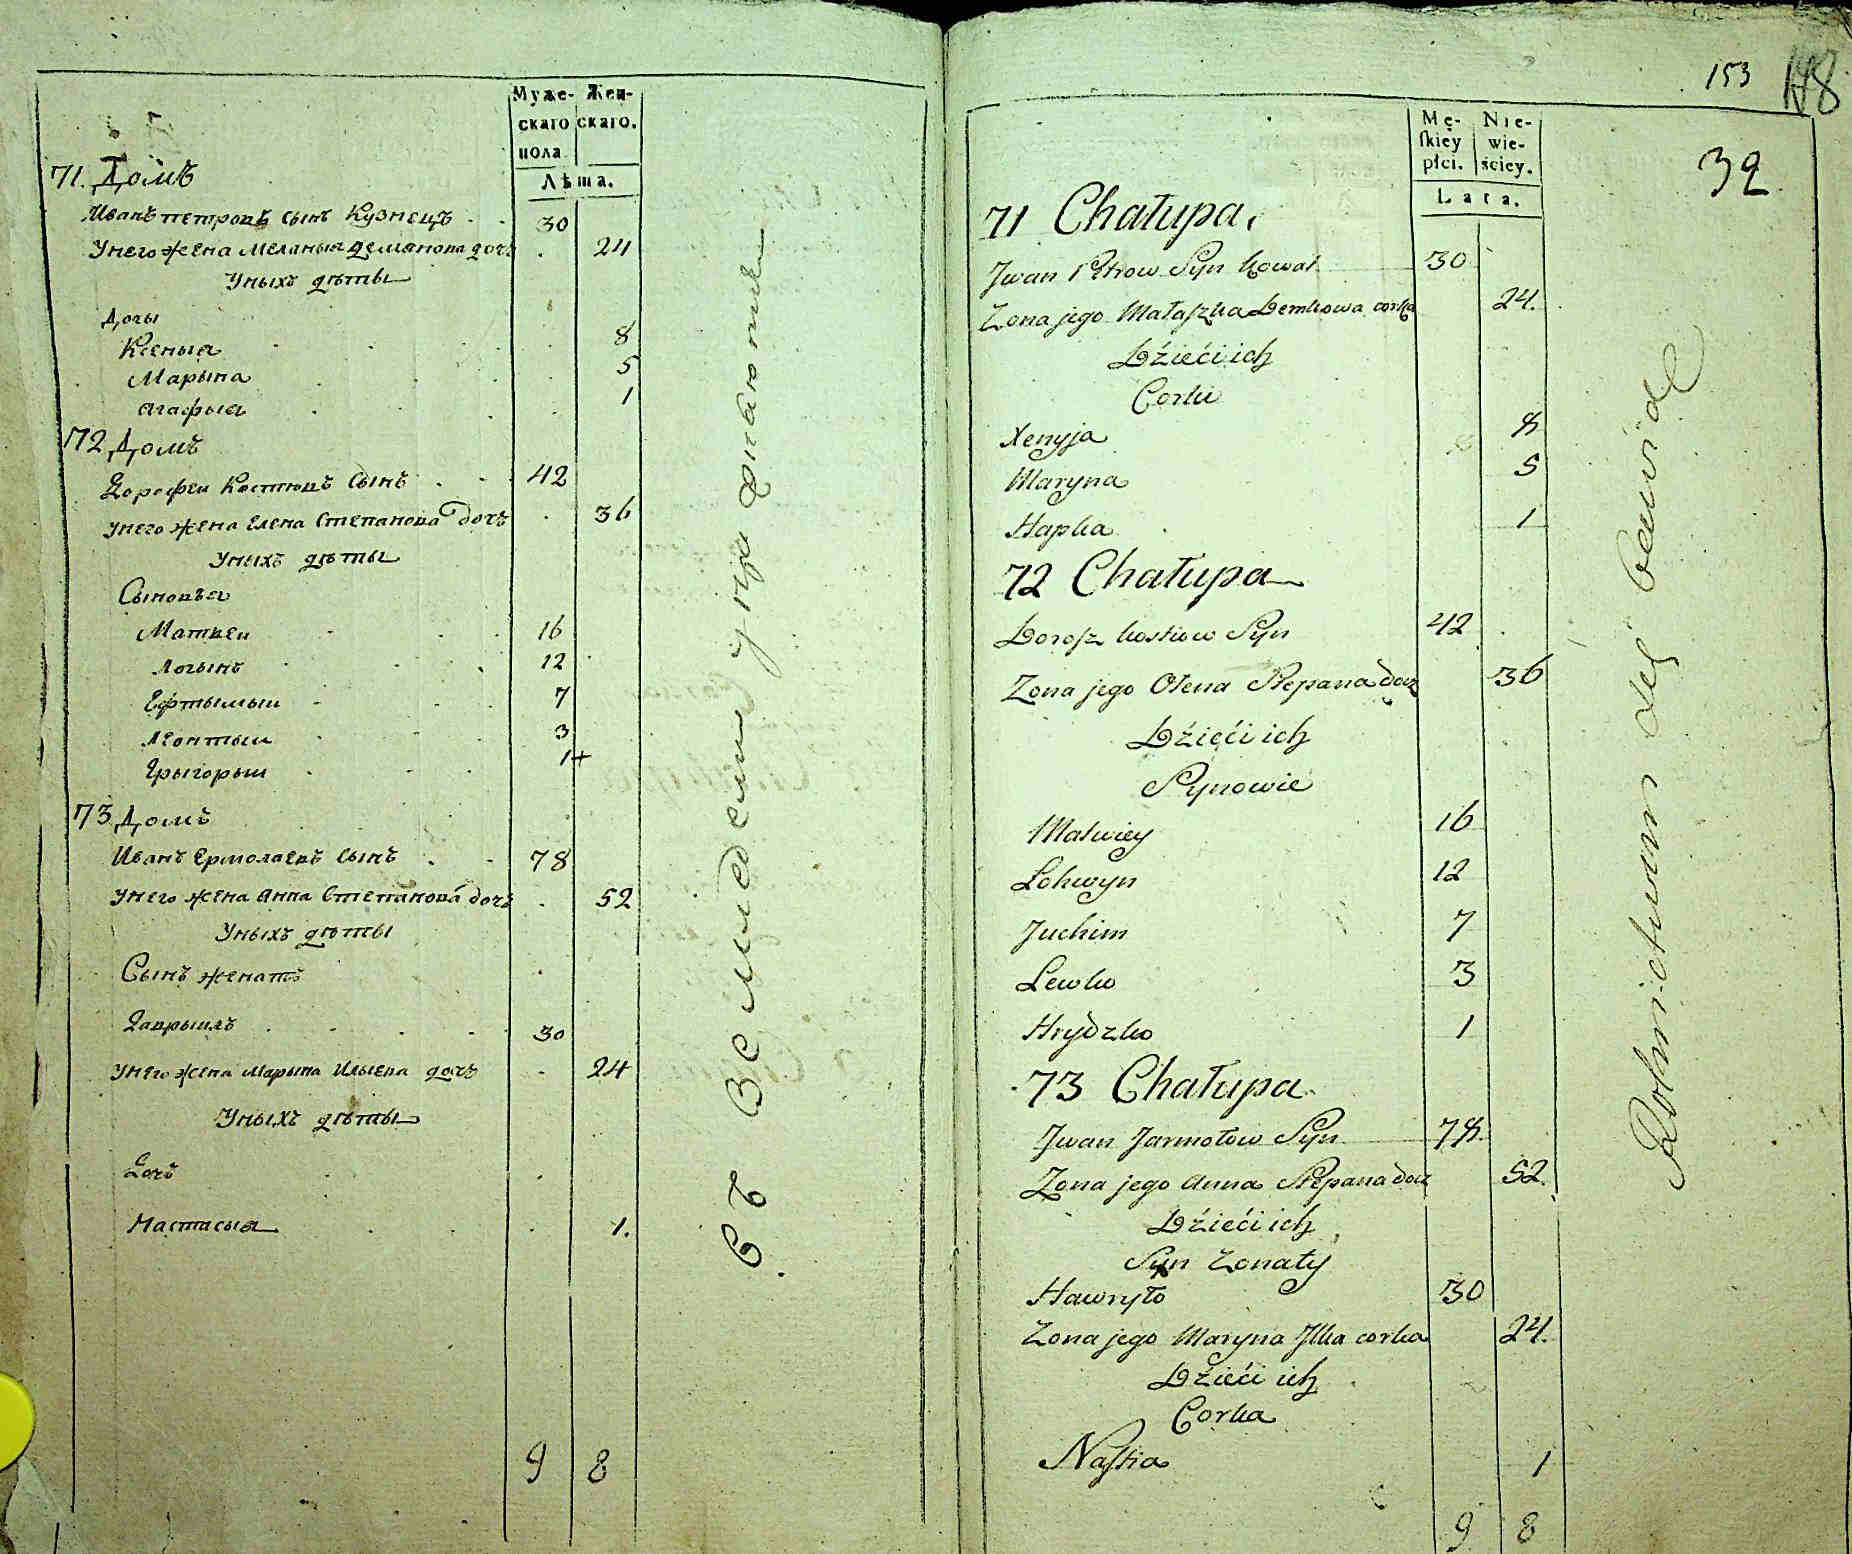 Муже- Жен-
скаго скаго.
пола
Лѣта.
71. Домъ
Иванъ петровъ сынъ Кузнецъ 30
Унего жена Меланья Демянова дочь 24
Уныхъ дѣты
Дочы
Ксенья 8
Марына 5
Агафья 1
72 Домъ
Дорофеи Костювъ Сынъ 42
унего жена Елена Степанова дочъ 36
Уныхъ дѣты
Сыновья
Матвеи 16
Логынъ 12
Ефтымыи 7
Леонтыи 3
Грыгорыи 1+
73 Домъ
Иванъ Ермолаевъ сынъ 78
унего жена Анна Степанова дочъ 52
Уныхъ дѣты
Сынъ женатъ
Гаврыилъ 30
унего жена Марына Ильева дочъ 24
Уныхъ дѣты
Дочъ
Настасыя 1.
9 8
Съ
153 148
32
Mę- Nie-
ſkiey wie-
płci. ściey.
Lata.
71 Chałupa.
Jwan Petrow Syn Kowal 30
Zona jego Małaſzka Demkowa corka 24.
Dźieći ich
Corki
Xenyja 8
Maryna 5
Hapka 1
72 Chałupa
Doroſz Kostiow Syn 42
Zona jego Ołena Stepana docz 36
Dźieći ich
Synowie
Matwiey 16
Lohwyn 12
Juchim 7
Lewko 3
Hrydzko 1
73 Chałupa
Jwan Jarmołow Syn 78
Zona jego Anna Stepana docz 52.
Dźieći ich
Syn Zonaty
Hawryło 30
Zona jego Maryna Jlka corka 24.
Dźieći ich
Corka
Naſtia 1
9 8